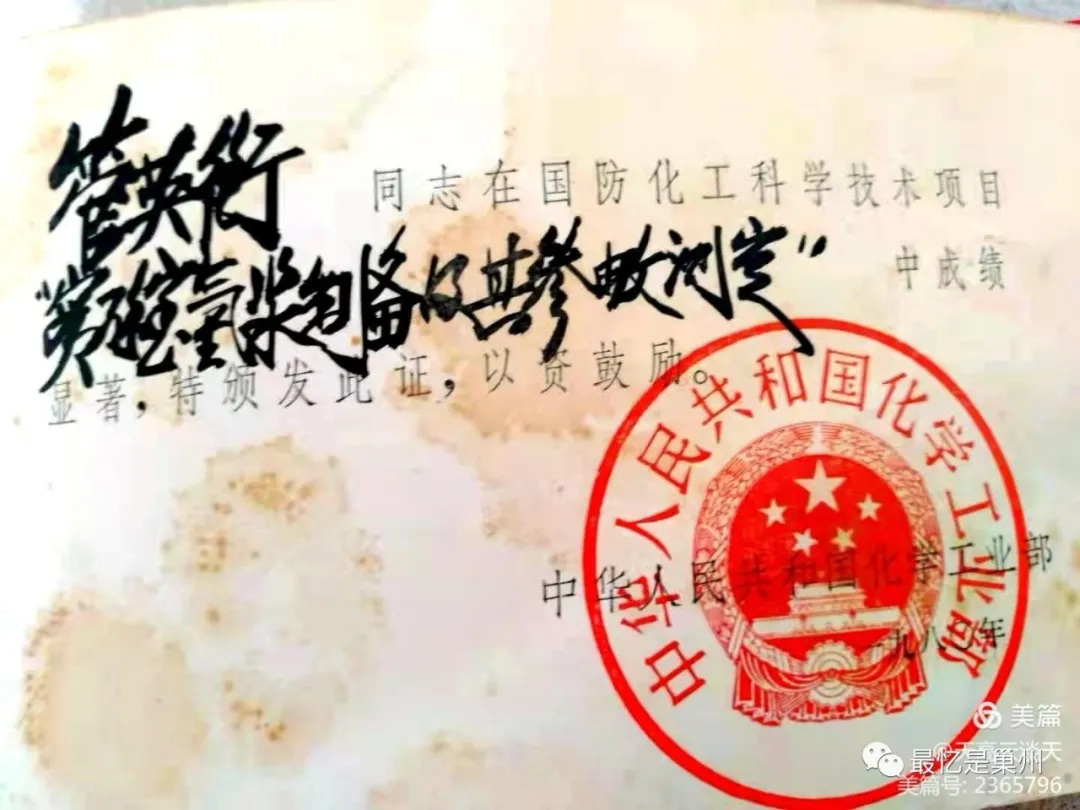 管英衡 同志在国防化工科学技术项目
氢制备及其参数测定” 中成绩
显著，特颁发此证，以资鼓励。
中华人民共和国化学工业部
中华人民共和国化学工业部
一九八〇年
美篇
最忆是巢州
美篇号: 2365796